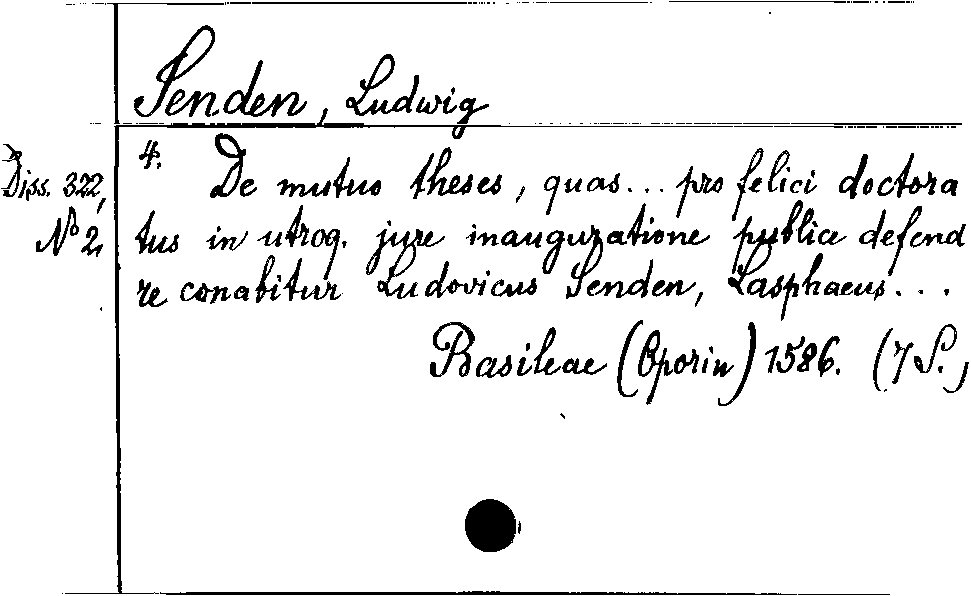 Senden, Ludwig
Diss. 322,
No 2,
4.
De mutuo theses, quas... pro felici doctora
tus in utroq. jure inauguratione publice defend
re conabitur Ludovicus Senden, Lasphaeus...
Basileae (Oporin) 1586. (7 S.)